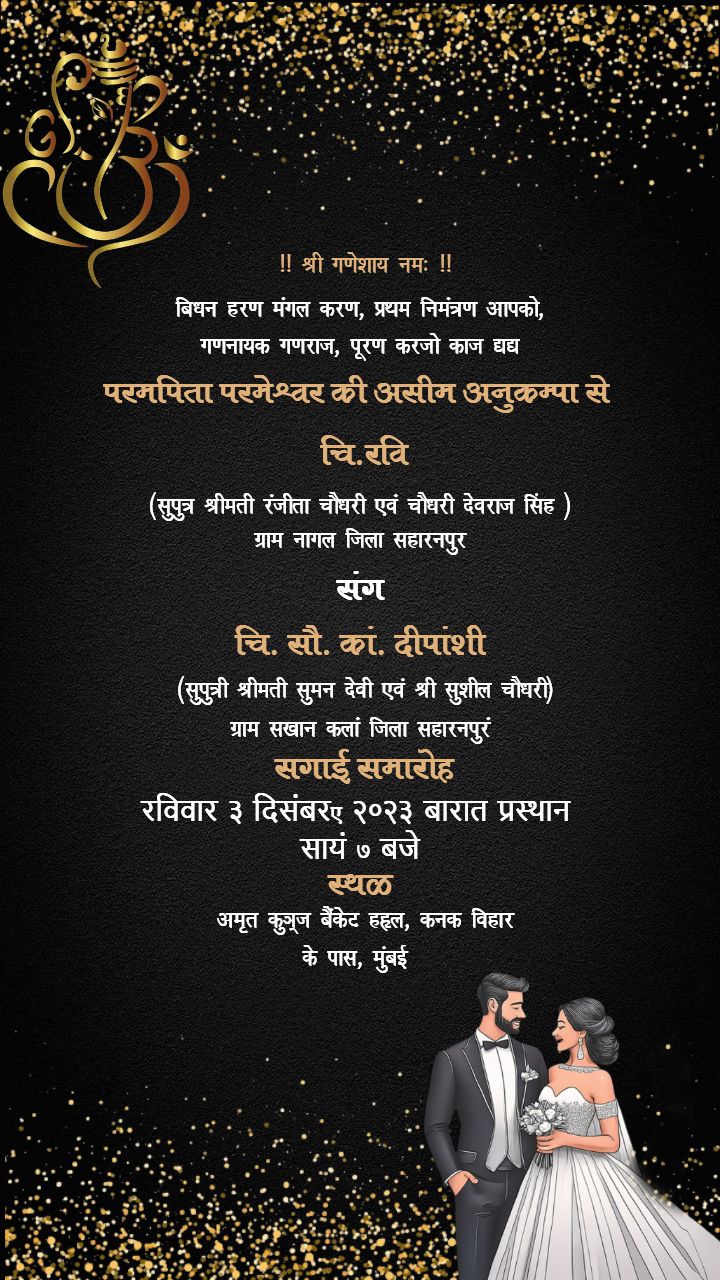 !! श्री गणेशाय नमः !!
बिधन हरण मंगल करण, प्रथम निमंत्रण आपको,
गणनायक गणराज, पूरण करजो काज द्यद्य
परमपिता परमेश्वर की असीम अनुकम्पा से
चि.रवि
(सुपुत्र श्रीमती रंजीता चौधरी एवं चौधरी देवराज सिंह )
ग्राम नागल जिला सहारनपुर
संग
चि. सौ. कां. दीपांशी
(सुपुत्री श्रीमती सुमन देवी एवं श्री सुशील चौधरी)
ग्राम सखान कलां जिला सहारनपुरं
सगाई समारोह
रविवार ३ दिसंबरए २०२३ बारात प्रस्थान
सायं ७ बजे
स्थळ
अमृत कुञ्ज बैंकेट हहृल, कनक विहार
के पास, मुंबई